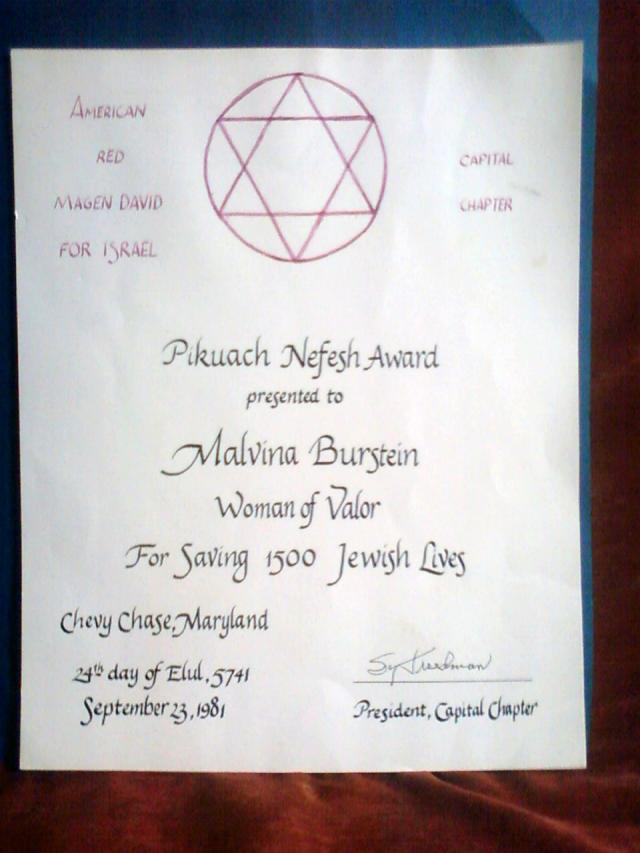 AMERICAN
RED
MAGEN DAVID
FOR ISRAEL
CAPITAL
CHAPTER
Pikuach Nefesh Award
presented to
Malvina Burstein
Woman of Valor
For Saving 1500 Jewish Lives
Chevy Chase, Maryland
24th day of Elul, 5741
September 23, 1981
President, Capital Chapter